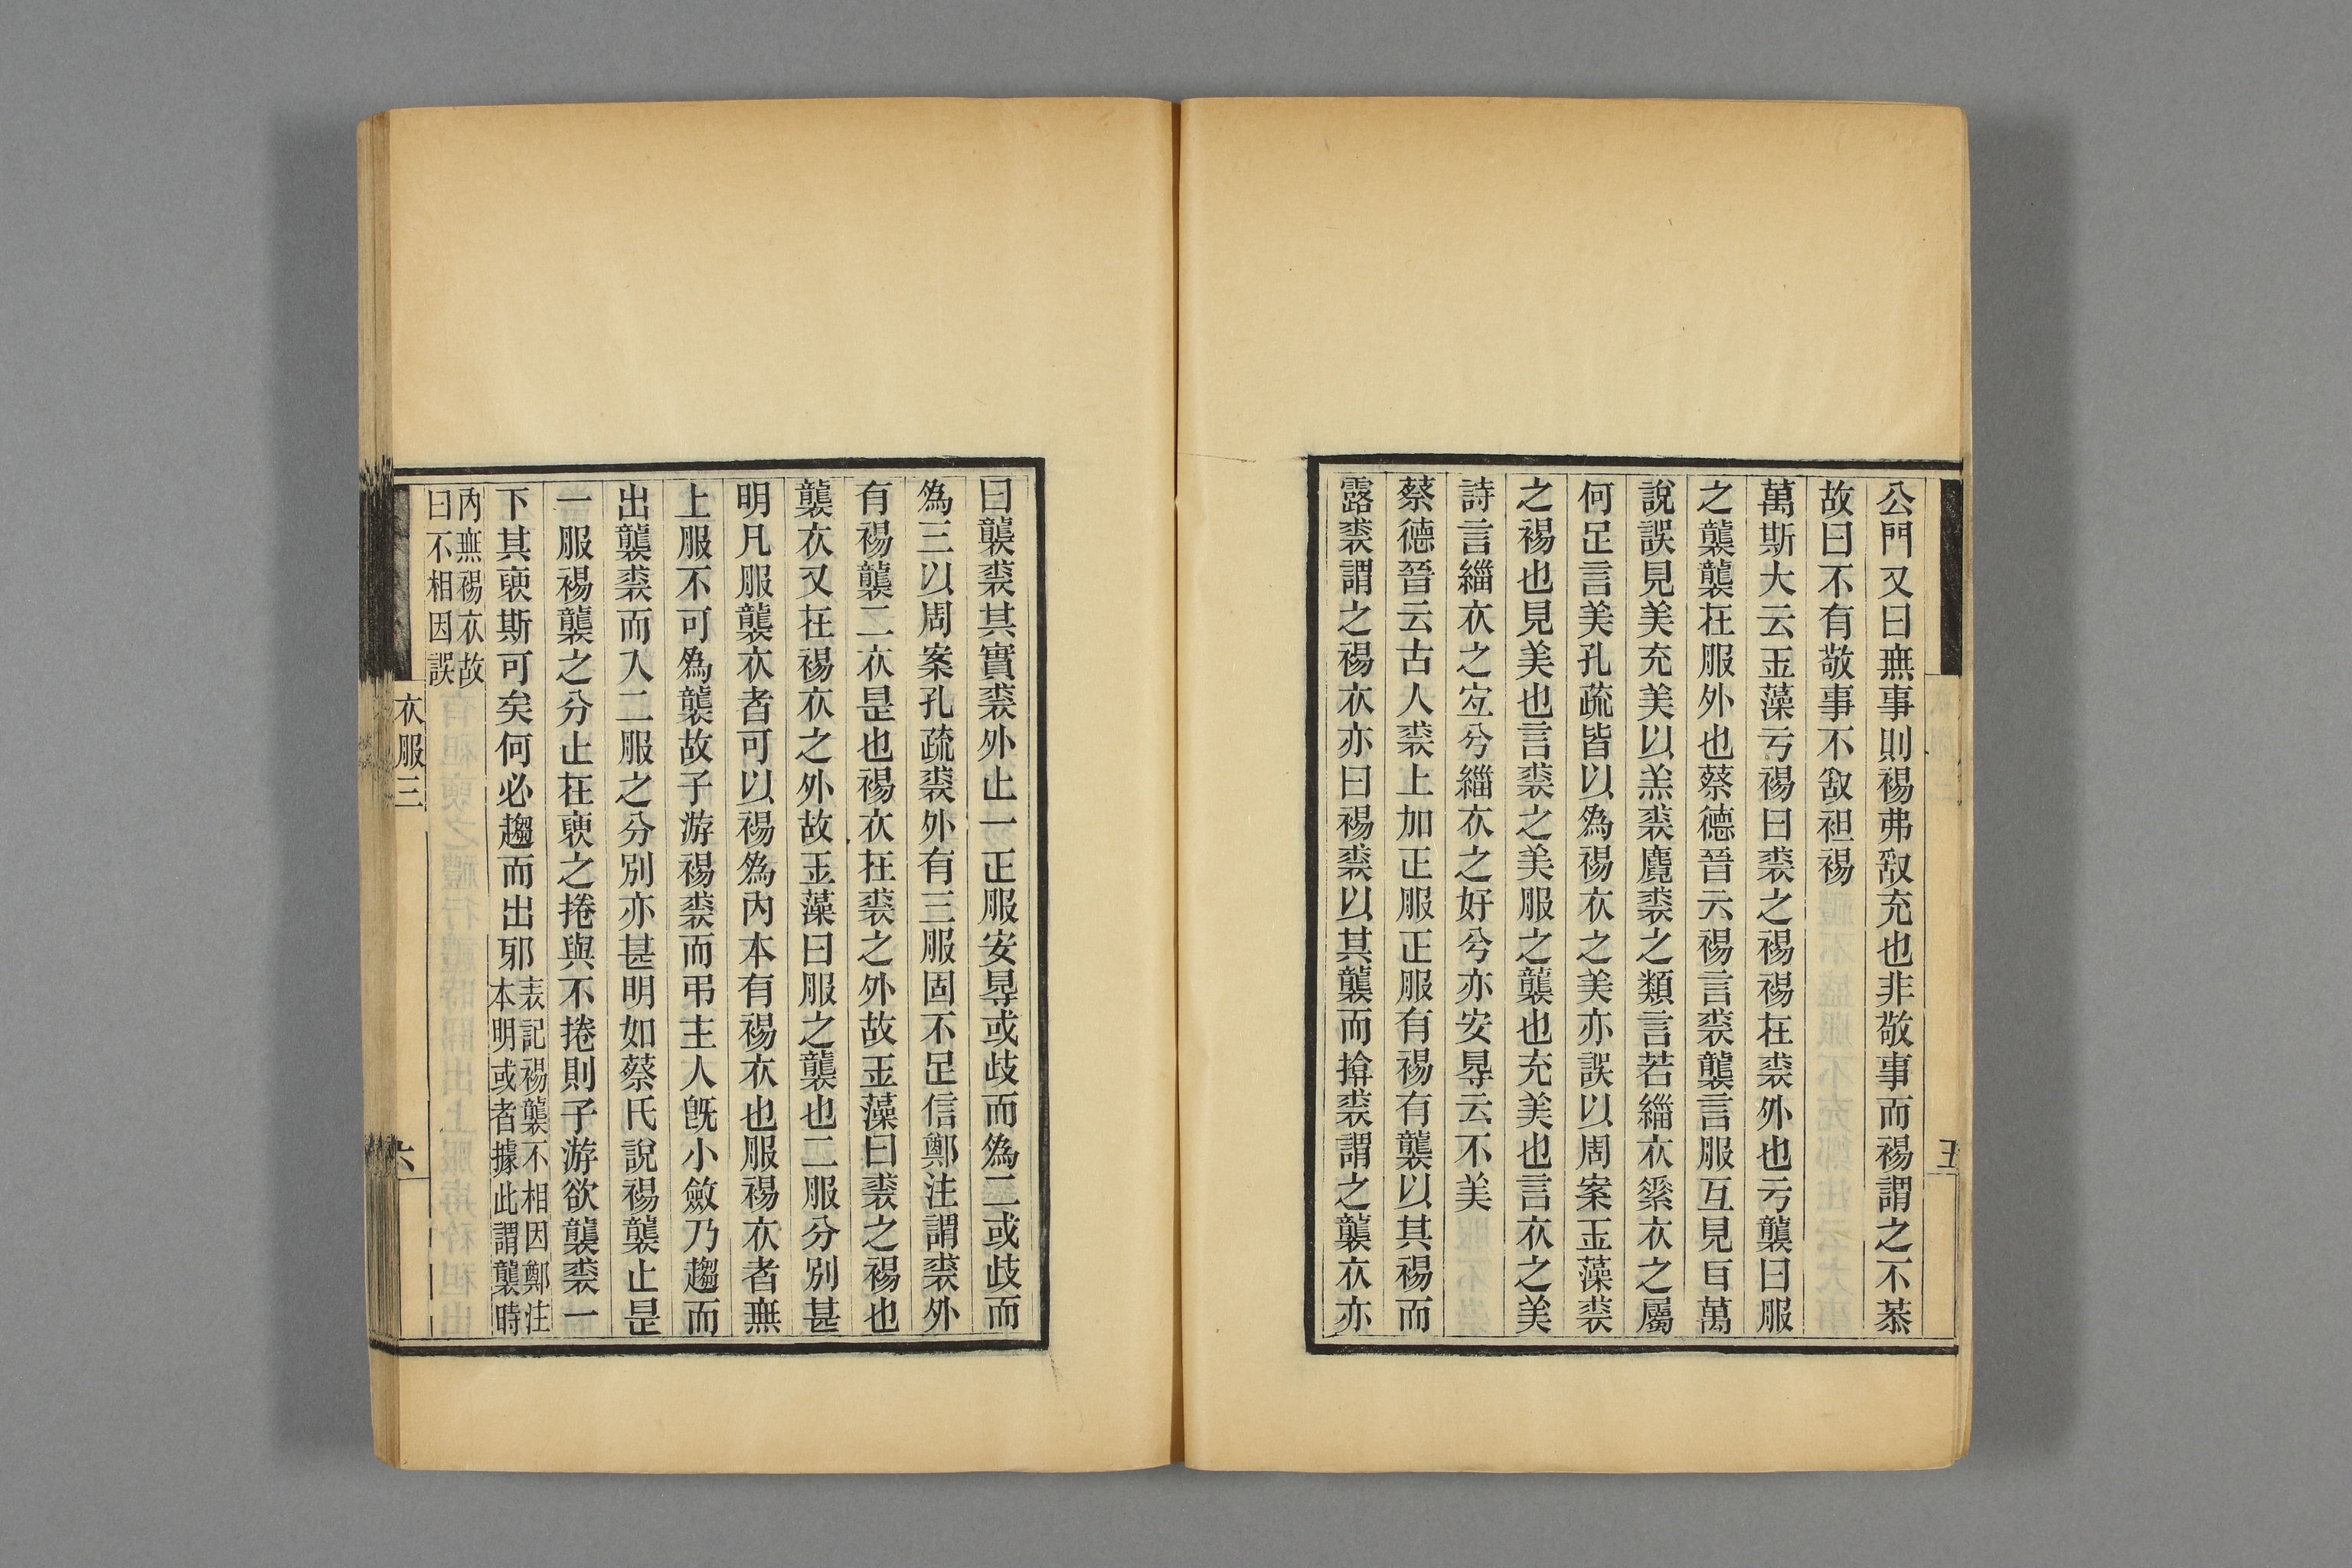 公門又曰無事則裼弗敢充也非敬事而裼謂之不恭
故曰不有敬事不敢袒裼
萬斯大云玉藻亏裼曰裘之裼裼在裘外也亏襲曰服
之襲襲在服外也蔡德晉云裼言裘襲言服互見𦣻萬
說誤見美充美以羔裘麑裘之類言若緇衣絫衣之屬
何足言美孔疏皆以為裼衣之美亦誤以周案玉藻裘
之裼也見美也言裘之美服之襲也充美也言衣之美
詩言緇衣之宐兮緇衣之好兮亦安㝵云不美
蔡德晉云古人裘上加正服正服有裼有襲以其裼而
露裘謂之裼衣亦曰裼裘以其襲而揜裘謂之襲衣亦
五
曰襲裘其實裘外止一正服安㝵或歧而為二或歧而
為三以周案孔疏裘外有三服固不足信鄭注謂裘外
有裼襲二衣是也裼衣在裘之外故玉藻曰裘之裼也
襲衣又在裼衣之外故玉藻曰服之襲也二服分別甚
明凡服襲衣者可以裼為內本有裼衣也服裼衣者無
上服不可為襲故子游裼裘而弔主人旣小斂乃趨而
出襲裘而入二服之分別亦甚明如蔡氏說裼襲止是
一服裼襲之分止在䙝之捲與不捲則子游欲襲裘一
下其䙝斯可矣何必趨而出邪表記裼襲不相因鄭注
本明或者據此謂襲時
內無裼衣故
曰不相因誤
衣服三
六